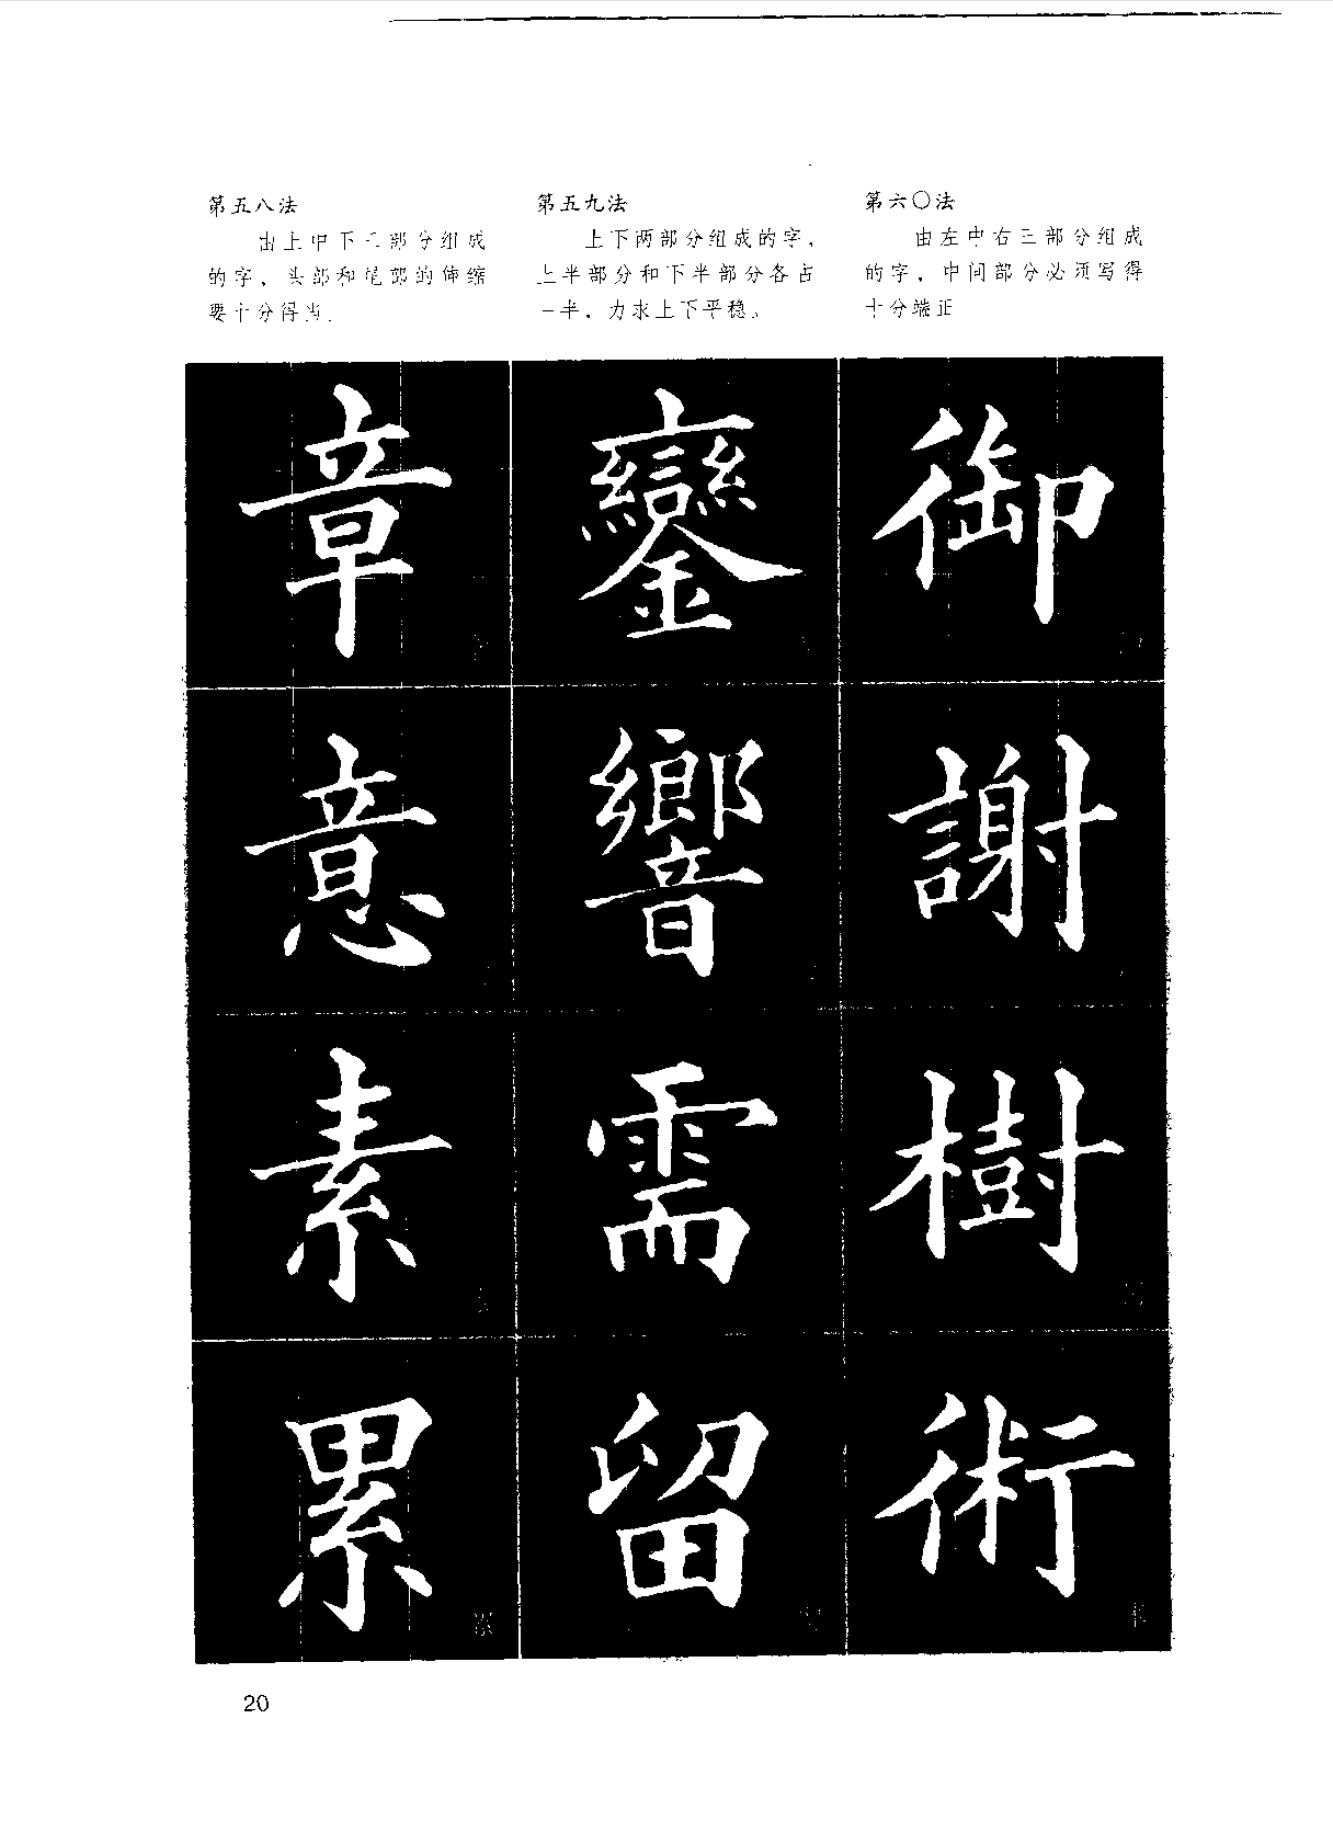 第五八法
由上中下三部分组成
的字，头部和尾部的伸缩
要十分得当。
第五九法
上下两部分组成的字，
上半部分和下半部分各占
一半，力求上下平稳。
第六〇法
由左中右三部分组成
的字，中间部分必须写得
十分端正
章 鑾 御
意 響 謝
素 需 樹
累 留 術
累
20